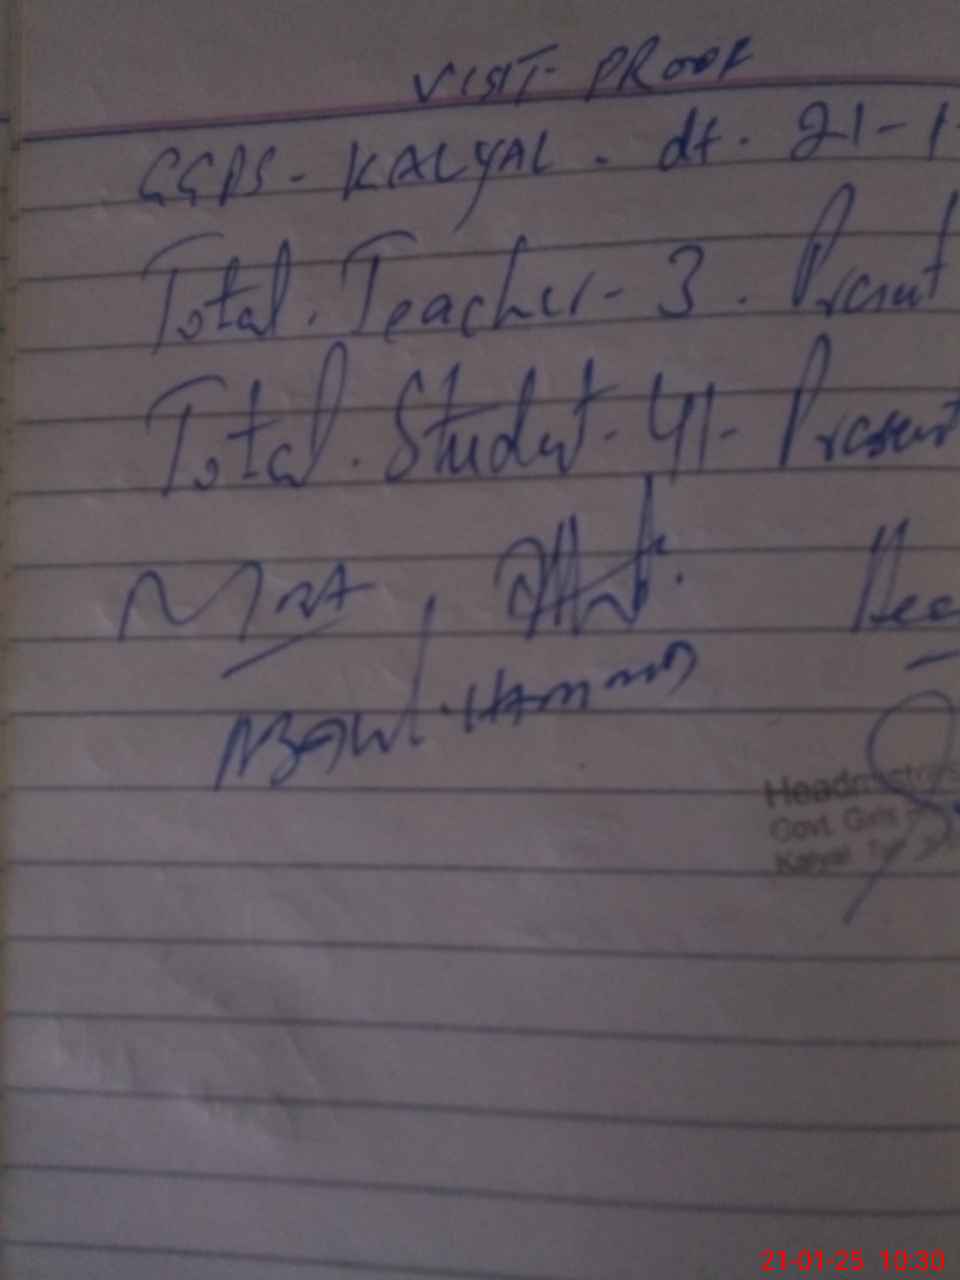 VISIT- PROOF
GGPS - KALYAL . dt . 21-1-
Total . Teacher - 3 . Present
Total . Student - 41 - Present
Hea
Headmistress
Govt. Girls
Kalyal
21-01-25 10:30